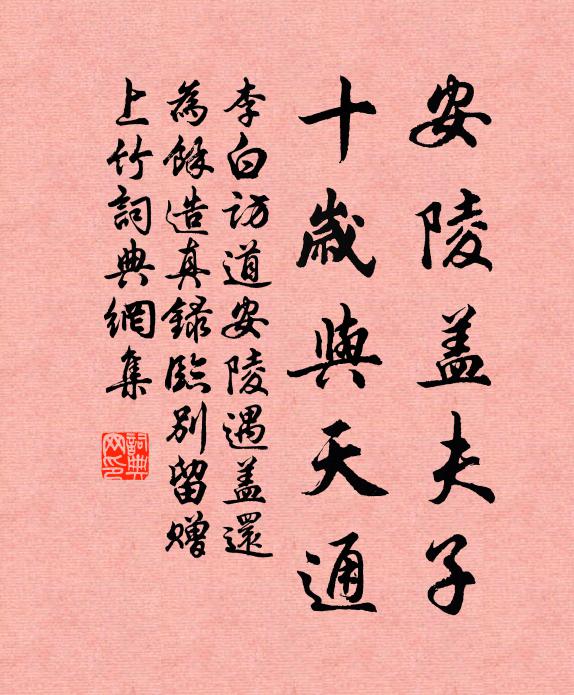 安陵盖夫子
十歲與天通
李白访道安陵遇盖還
為餘造真録臨别留赠
上竹詞典網集
詞典网印